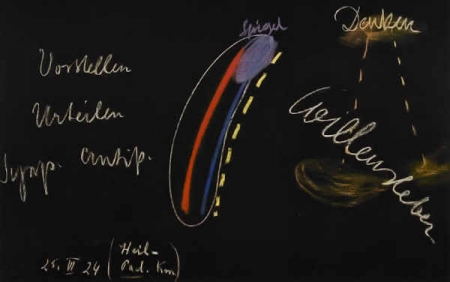 Spiegel
Denken
Vorstellen
Urteilen
Symp. Antip.
Willensleben
25. VI 24 (Heil-
Päd.